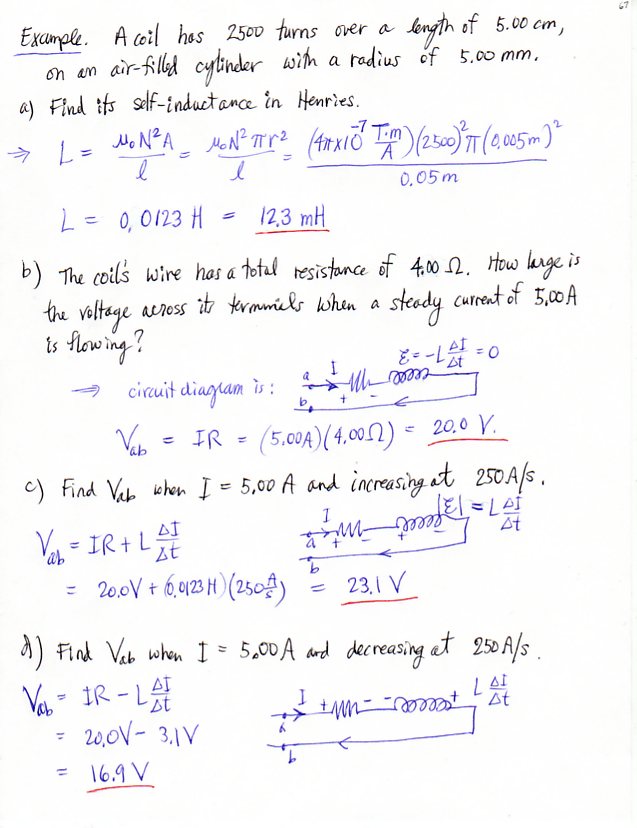 67
Example. A coil has 2500 turns over a length of 5.00 cm,
on an air-filled cylinder with a radius of 5.00 mm.
a) Find its self-inductance in Henries.
⇒ L = μ₀N²A / l = μ₀N²πr² / l = (4π×10⁻⁷ T·m/A)(2500)²π(0.005m)² / 0.05m
L = 0.0123 H = 12.3 mH
b) The coil's wire has a total resistance of 4.00 Ω. How large is
the voltage across its terminals when a steady current of 5.00 A
is flowing?
ε = -L ΔI/Δt = 0
⇒ circuit diagram is: a I + - b
V_ab = IR = (5.00A)(4.00Ω) = 20.0 V.
c) Find V_ab when I = 5.00 A and increasing at 250 A/s.
|ε| = L ΔI/Δt
V_ab = IR + L ΔI/Δt I a + - + - b
= 20.0V + (0.0123H)(250 A/s) = 23.1 V
d) Find V_ab when I = 5.00A and decreasing at 250 A/s.
V_ab = IR - L ΔI/Δt I a + - - + L ΔI/Δt b
= 20.0V - 3.1V
= 16.9 V